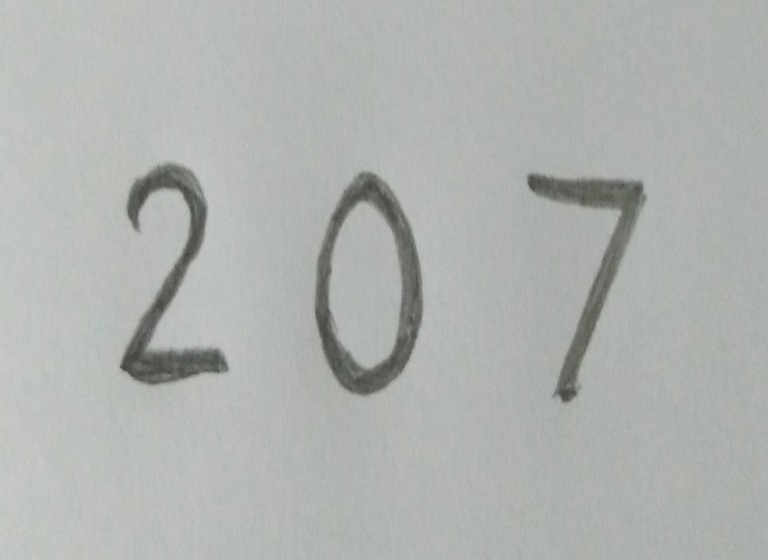 2 0 7